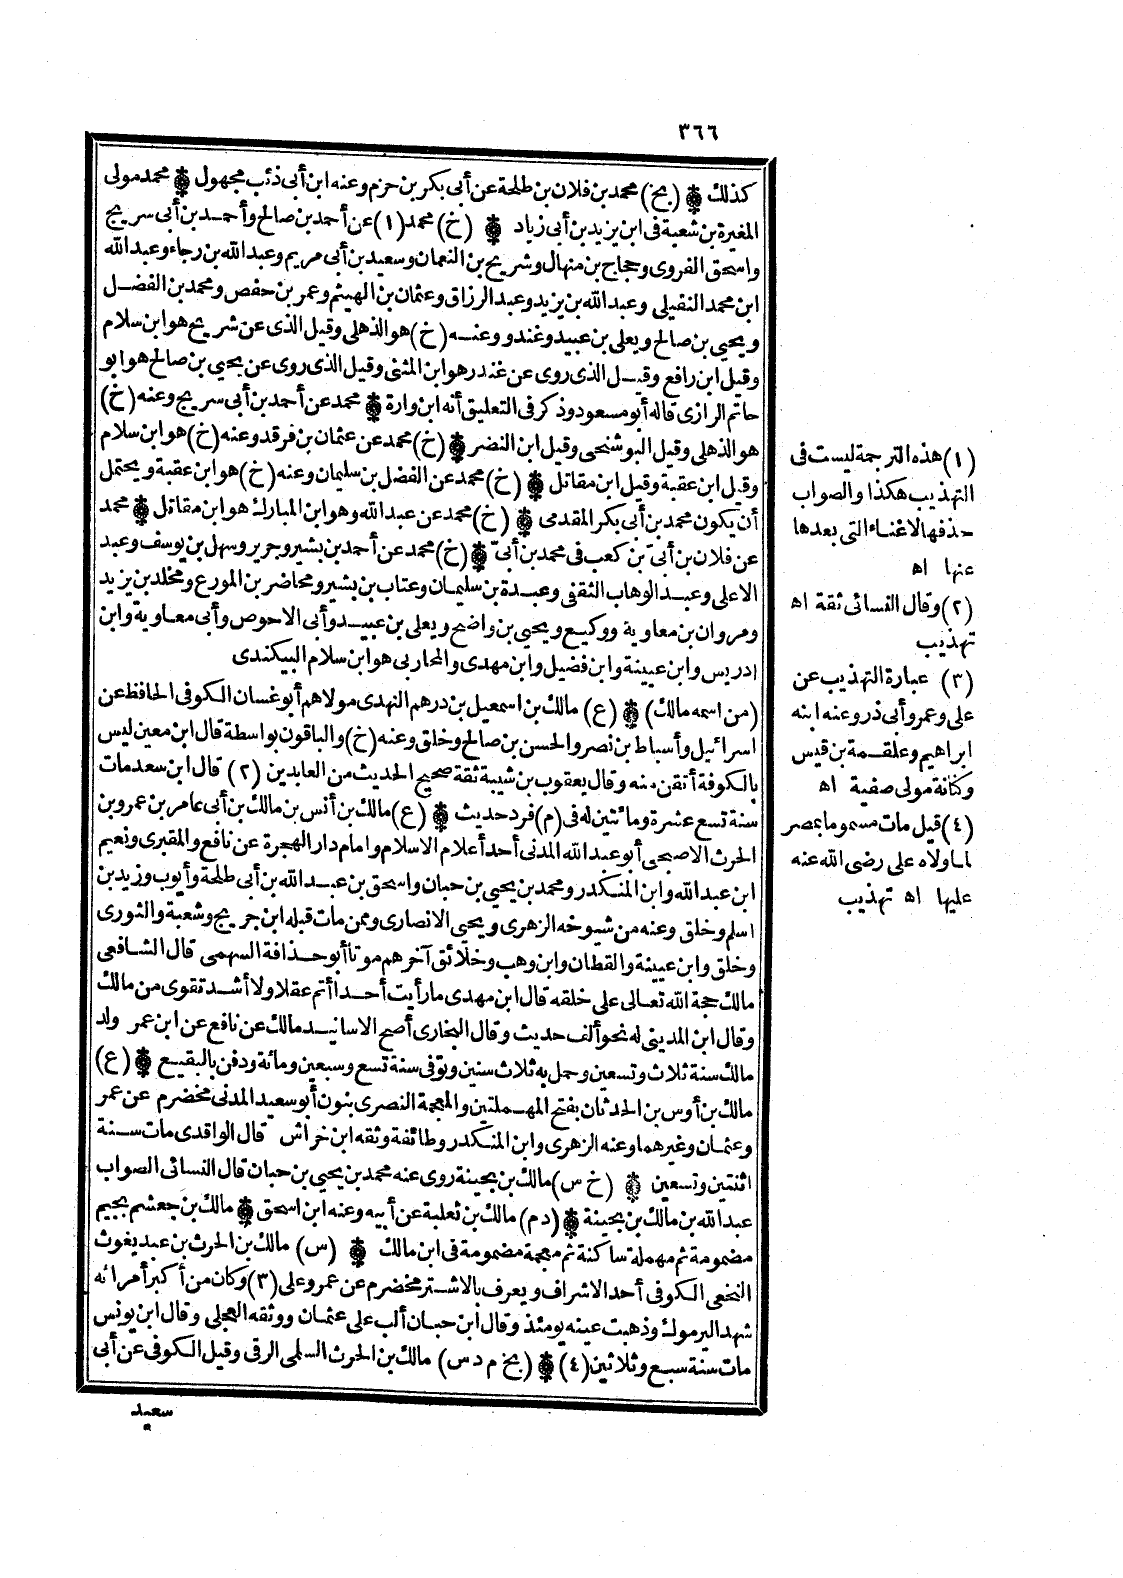 ٣٦٦
كذلك ۞ (بخ) محمد بن فلان بن طلحة عن أبى بكر بن حزم وعنه ابن أبى ذئب مجهول ۞ محمد مولى
المغيرة بن شعبة فى ابن يزيد بن أبى زياد ۞ (خ) محمد (١) عن أحمد بن صالح وأحمد بن أبى سريج
واسحق الفروى وحجاج بن منهال وشريح بن النعمان وسعيد بن أبى مريم وعبد الله بن رجاء وعبد الله
ابن محمد النفيلى وعبد الله بن يزيد وعبد الرزاق وعثمان بن الهيثم وعمر بن حفص ومحمد بن الفضل
ويحيى بن صالح ويعلى بن عبيد وغندر وعنه (خ) هو الذهلى وقيل الذى عن شريح هو ابن سلام
وقيل ابن رافع وقيل الذى روى عن غندر هو ابن المثنى وقيل الذى روى عن يحيى بن صالح هو ابو
حاتم الرازى قاله أبو مسعود وذكر فى التعليق أنه ابن وارة ۞ محمد عن أحمد بن أبى سريج وعنه (خ)
هو الذهلى وقيل البوشنجى وقيل ابن النضر ۞ (خ) محمد عن عثمان بن فرقد وعنه (خ) هو ابن سلام
وقيل ابن عقبة وقيل ابن مقاتل ۞ (خ) محمد عن الفضل بن سليمان وعنه (خ) هو ابن عقبة ويحتمل
أن يكون محمد بن أبى بكر المقدمى ۞ (خ) محمد عن عبد الله وهو ابن المبارك هو ابن مقاتل ۞ محمد
عن فلان بن أبىّ بن كعب فى محمد بن أبىّ ۞ (خ) محمد عن أحمد بن بشير وجرير وسهل بن يوسف وعبد
الاعلى وعبد الوهاب الثقفى وعبدة بن سليمان وعتاب بن بشير ومحاضر بن المورع ومخلد بن يزيد
ومروان بن معاوية ووكيع ويحيى بن واضح ويعلى بن عبيد وأبى الاحوص وأبى معاوية وابن
ادريس وابن عيينة وابن فضيل وابن مهدى والمحاربى هو ابن سلام البيكندى
(من اسمه مالك) ۞ (ع) مالك بن اسمعيل بن درهم النهدى مولاهم أبو غسان الكوفى الحافظ عن
اسرائيل وأسباط بن نصر والحسن بن صالح وخلق وعنه (خ) والباقون بواسطة قال ابن معين ليس
بالكوفة أتقن منه وقال يعقوب بن شيبة ثقة صحيح الحديث من العابدين (٢) قال ابن سعد مات
سنة تسع عشرة ومائتين له فى (م) فرد حديث ۞ (ع) مالك بن أنس بن مالك بن أبى عامر بن عمرو بن
الحرث الاصبحى أبو عبد الله المدنى أحد أعلام الاسلام وامام دار الهجرة عن نافع والمقبرى ونعيم
ابن عبد الله وابن المنكدر ومحمد بن يحيى بن حبان واسحق بن عبد الله بن أبى طلحة وأيوب وزيد بن
اسلم وخلق وعنه من شيوخه الزهرى ويحيى الانصارى وممن مات قبله ابن جريج وشعبة والثورى
وخلق وابن عيينة والقطان وابن وهب وخلائق آخرهم موتا أبو حذافة السهمى قال الشافعى
مالك حجة الله تعالى على خلقه قال ابن مهدى ما رأيت أحدا أتم عقلا ولا أشد تقوى من مالك
وقال ابن المدينى له نحو ألف حديث وقال البخارى أصح الاسانيد مالك عن نافع عن ابن عمر ولد
مالك سنة ثلاث وتسعين وحمل به ثلاث سنين وتوفى سنة تسع وسبعين ومائة ودفن بالبقيع ۞ (ع)
مالك بن أوس بن الحدثان بفتح المهملتين والمعجمة النصرى بنون أبو سعيد المدنى مخضرم عن عمر
وعثمان وغيرهما وعنه الزهرى وابن المنكدر وطائفة وثقه ابن خراش قال الواقدى مات سنة
اثنتين وتسعين ۞ (خ س) مالك بن بحينة روى عنه محمد بن يحيى بن حبان قال النسائى الصواب
عبد الله بن مالك بن بحينة ۞ (د م) مالك بن ثعلبة عن أبيه وعنه ابن اسحق ۞ مالك بن جعشم بجيم
مضمومة ثم مهملة ساكنة ثم معجمة مضمومة فى ابن مالك ۞ (س) مالك بن الحرث بن عبد يغوث
النخعى الكوفى أحد الاشراف ويعرف بالاشتر مخضرم عن عمر وعلى (٣) وكان من أكبر أمرائه
شهد اليرموك وذهبت عينه يومئذ وقال ابن حبان ألب على عثمان ووثقه العجلى وقال ابن يونس
مات سنة سبع وثلاثين (٤) ۞ (بخ م د س) مالك بن الحرث السلمى الرقى وقيل الكوفى عن أبى
سعيد
(١) هذه الترجمة ليست فى
التهذيب هكذا والصواب
حذفها لاغناء التى بعدها
عنها اه
(٢) وقال النسائى ثقة اه
تهذيب
(٣) عبارة التهذيب عن
على وعمر وأبى ذر وعنه ابنه
ابراهيم وعلقمة بن قيس
وكنانة مولى صفية اه
(٤) قيل مات مسموما بمصر
لما ولاه على رضى الله عنه
عليها اه تهذيب